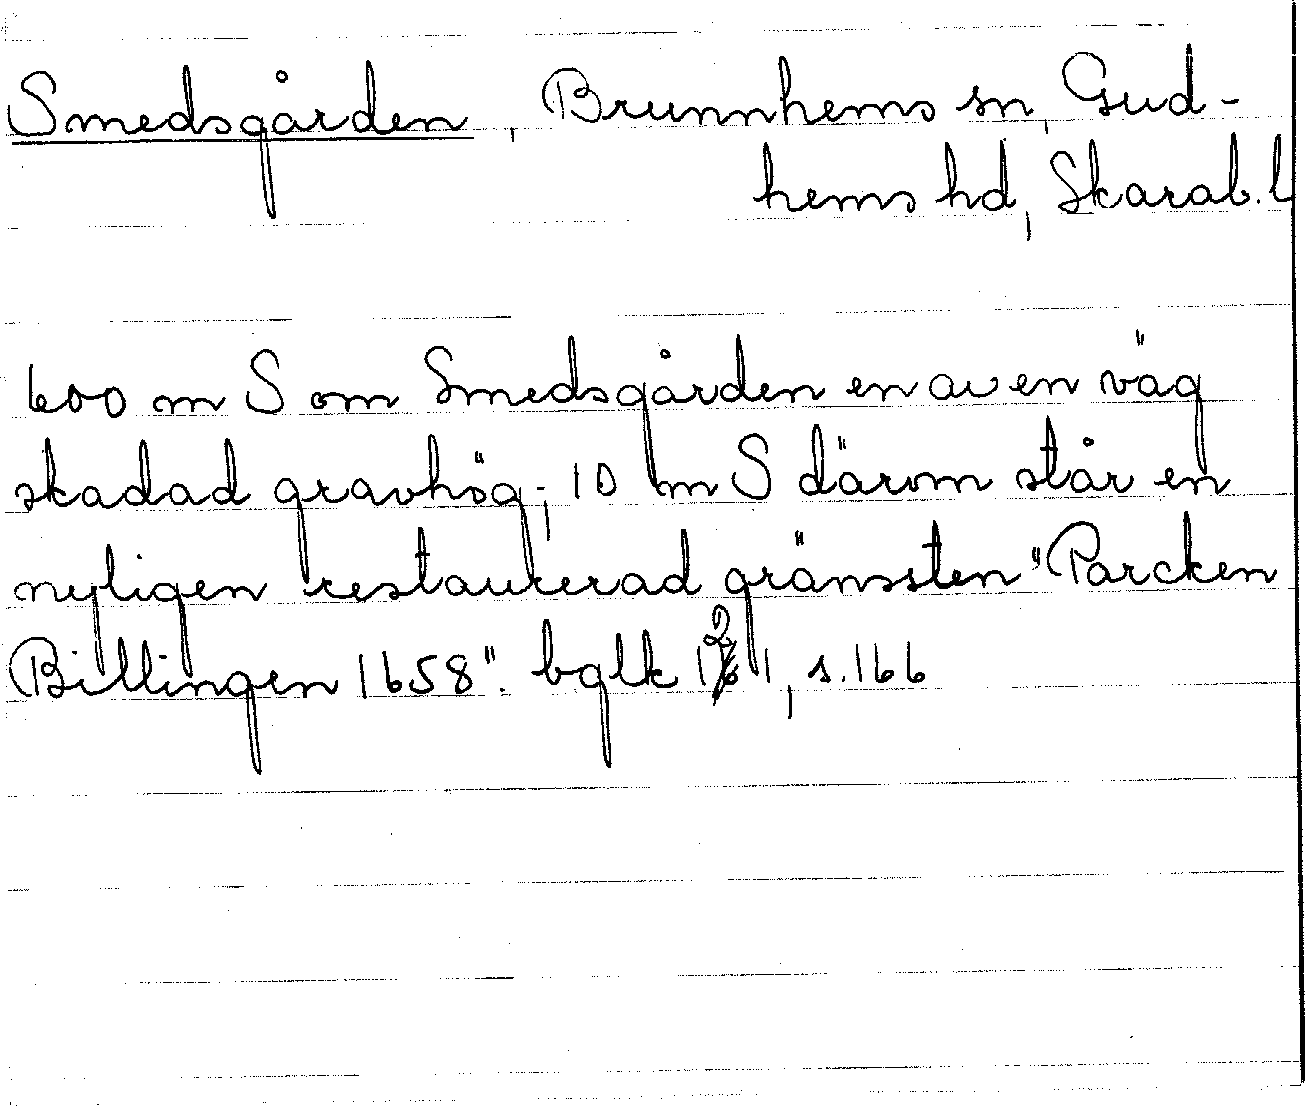 Smedsgården, Brunnhems sn, Gud-
hems hd, Skarab. l
600 m S om Smedsgården en av en väg
skadad gravhög; 10 m S därom står en
nyligen restaurerad gränssten "Parcken
Billingen 1658". bglk 121, s.166